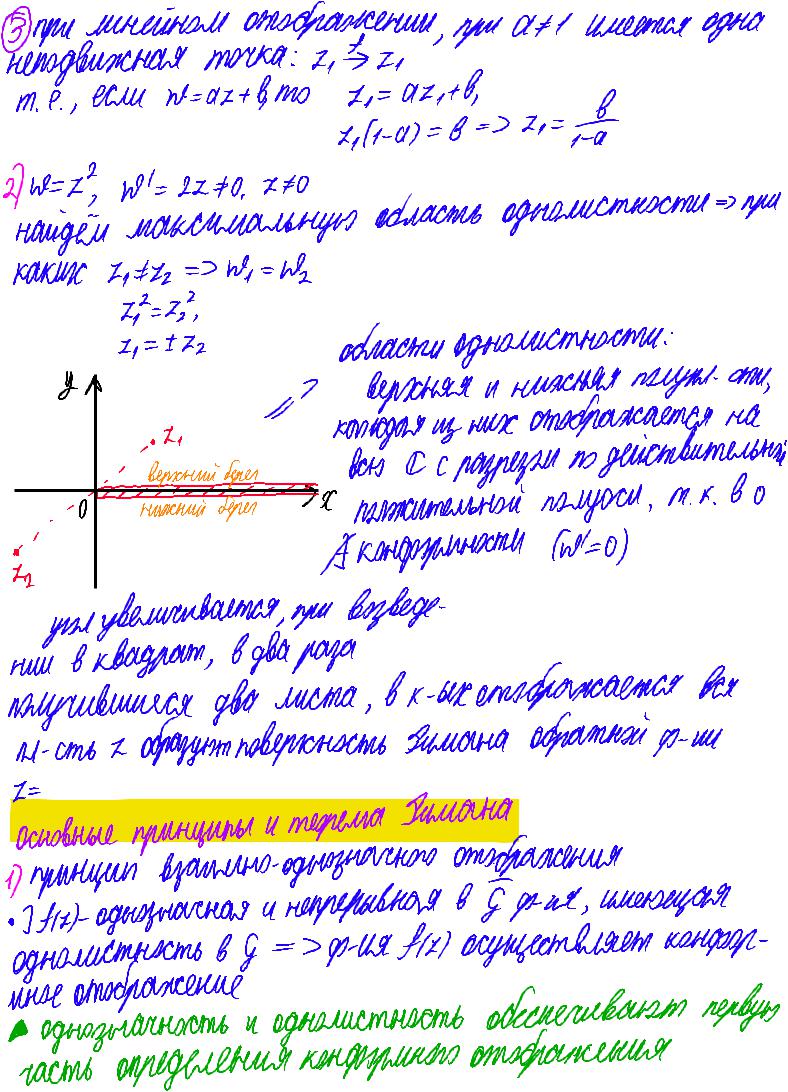 3) при линейном отображении, при a≠1 имеется одна
неподвижная точка: z₁ →f z₁
т.е., если w=az+b, то z₁=az₁+b,
z₁(1-a)=b => z₁= b/(1-a)
2) w=z², w'=2z≠0, z≠0
найдём максимальную область однолистности => при
каких z₁≠z₂ => w₁=w₂
z₁²=z₂²,
z₁=±z₂
y
z₁
верхний берег
0
x
нижний берег
z₂
области однолистности:
верхняя и нижняя полупл-сти,
каждая из них отображается на
всю ℂ с разрезом по действительной
положительной полуоси, т.к. в 0
∄ конформности (w'=0)
угол увеличивается, при возведе-
нии в квадрат, в два раза
получившиеся два листа, в к-ых отображается вся
пл-сть z образуют поверхность Римана обратной ф-ии
z=
основные принципы и теорема Римана
1) принцип взаимно-однозначного отображения
• ] f(z)- однозначная и непрерывная в G̅ ф-ия, имеющая
однолистность в G => ф-ия f(z) осуществляет конфор-
мное отображение
▲ однозначность и однолистность обеспечивают первую
часть определения конформного отображения